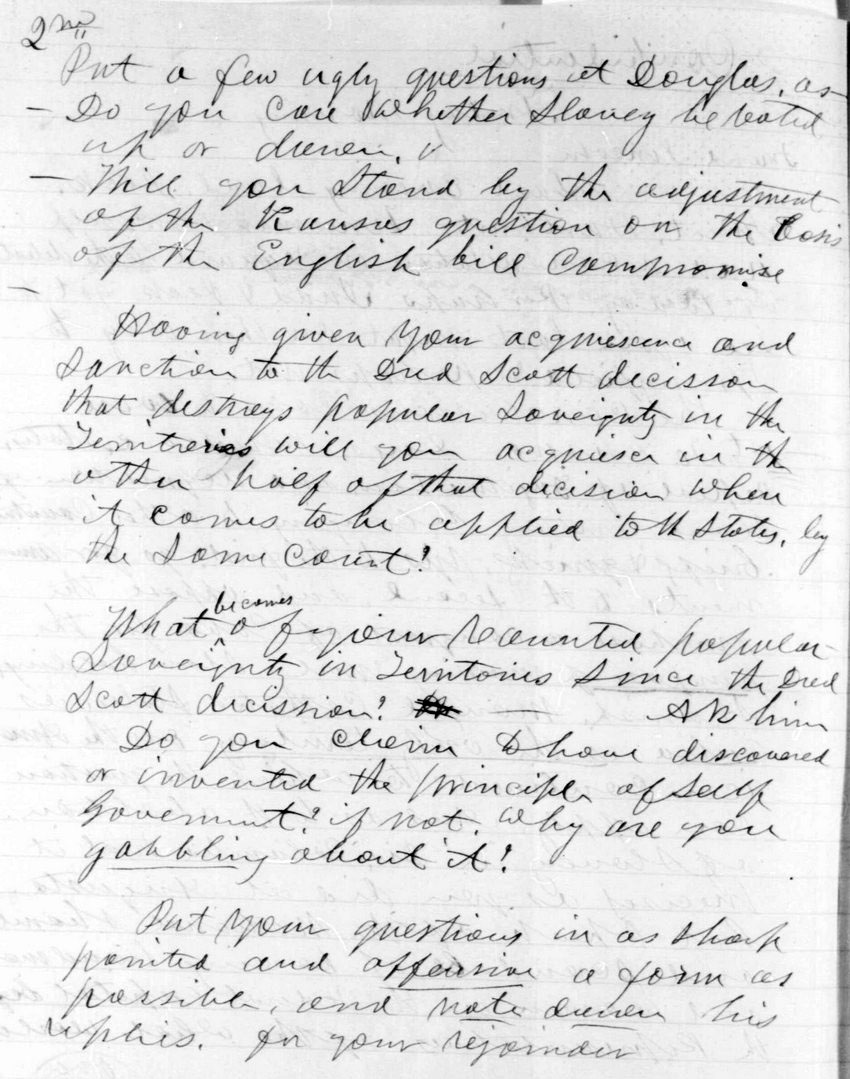 2nd
Put a few ugly questions at Douglas, as
– Do you care whether Slavery be voted
up or down, &
– Will you stand by the adjustment
of the Kansas question on the basis
of the English bill compromise
–
Having given your acquiescence and
Sanction to th Dred Scott decission
that destroys popular Soveignty in the
Territories will you acquiesce in th
other half of that decision when
it comes to be applied to th States, by
the same court?
What becomes of your vaunted popular
Soveignty in Territories since the Dred
Scott decission? Ask him
Do you claim to have discovered
or invented the principle of Self
Goverment? if not, Why are you
gabbling about it?
Put your questions in as sharp
pointed and offensive a form as
possible, and note down his
replies. for your rejoinder